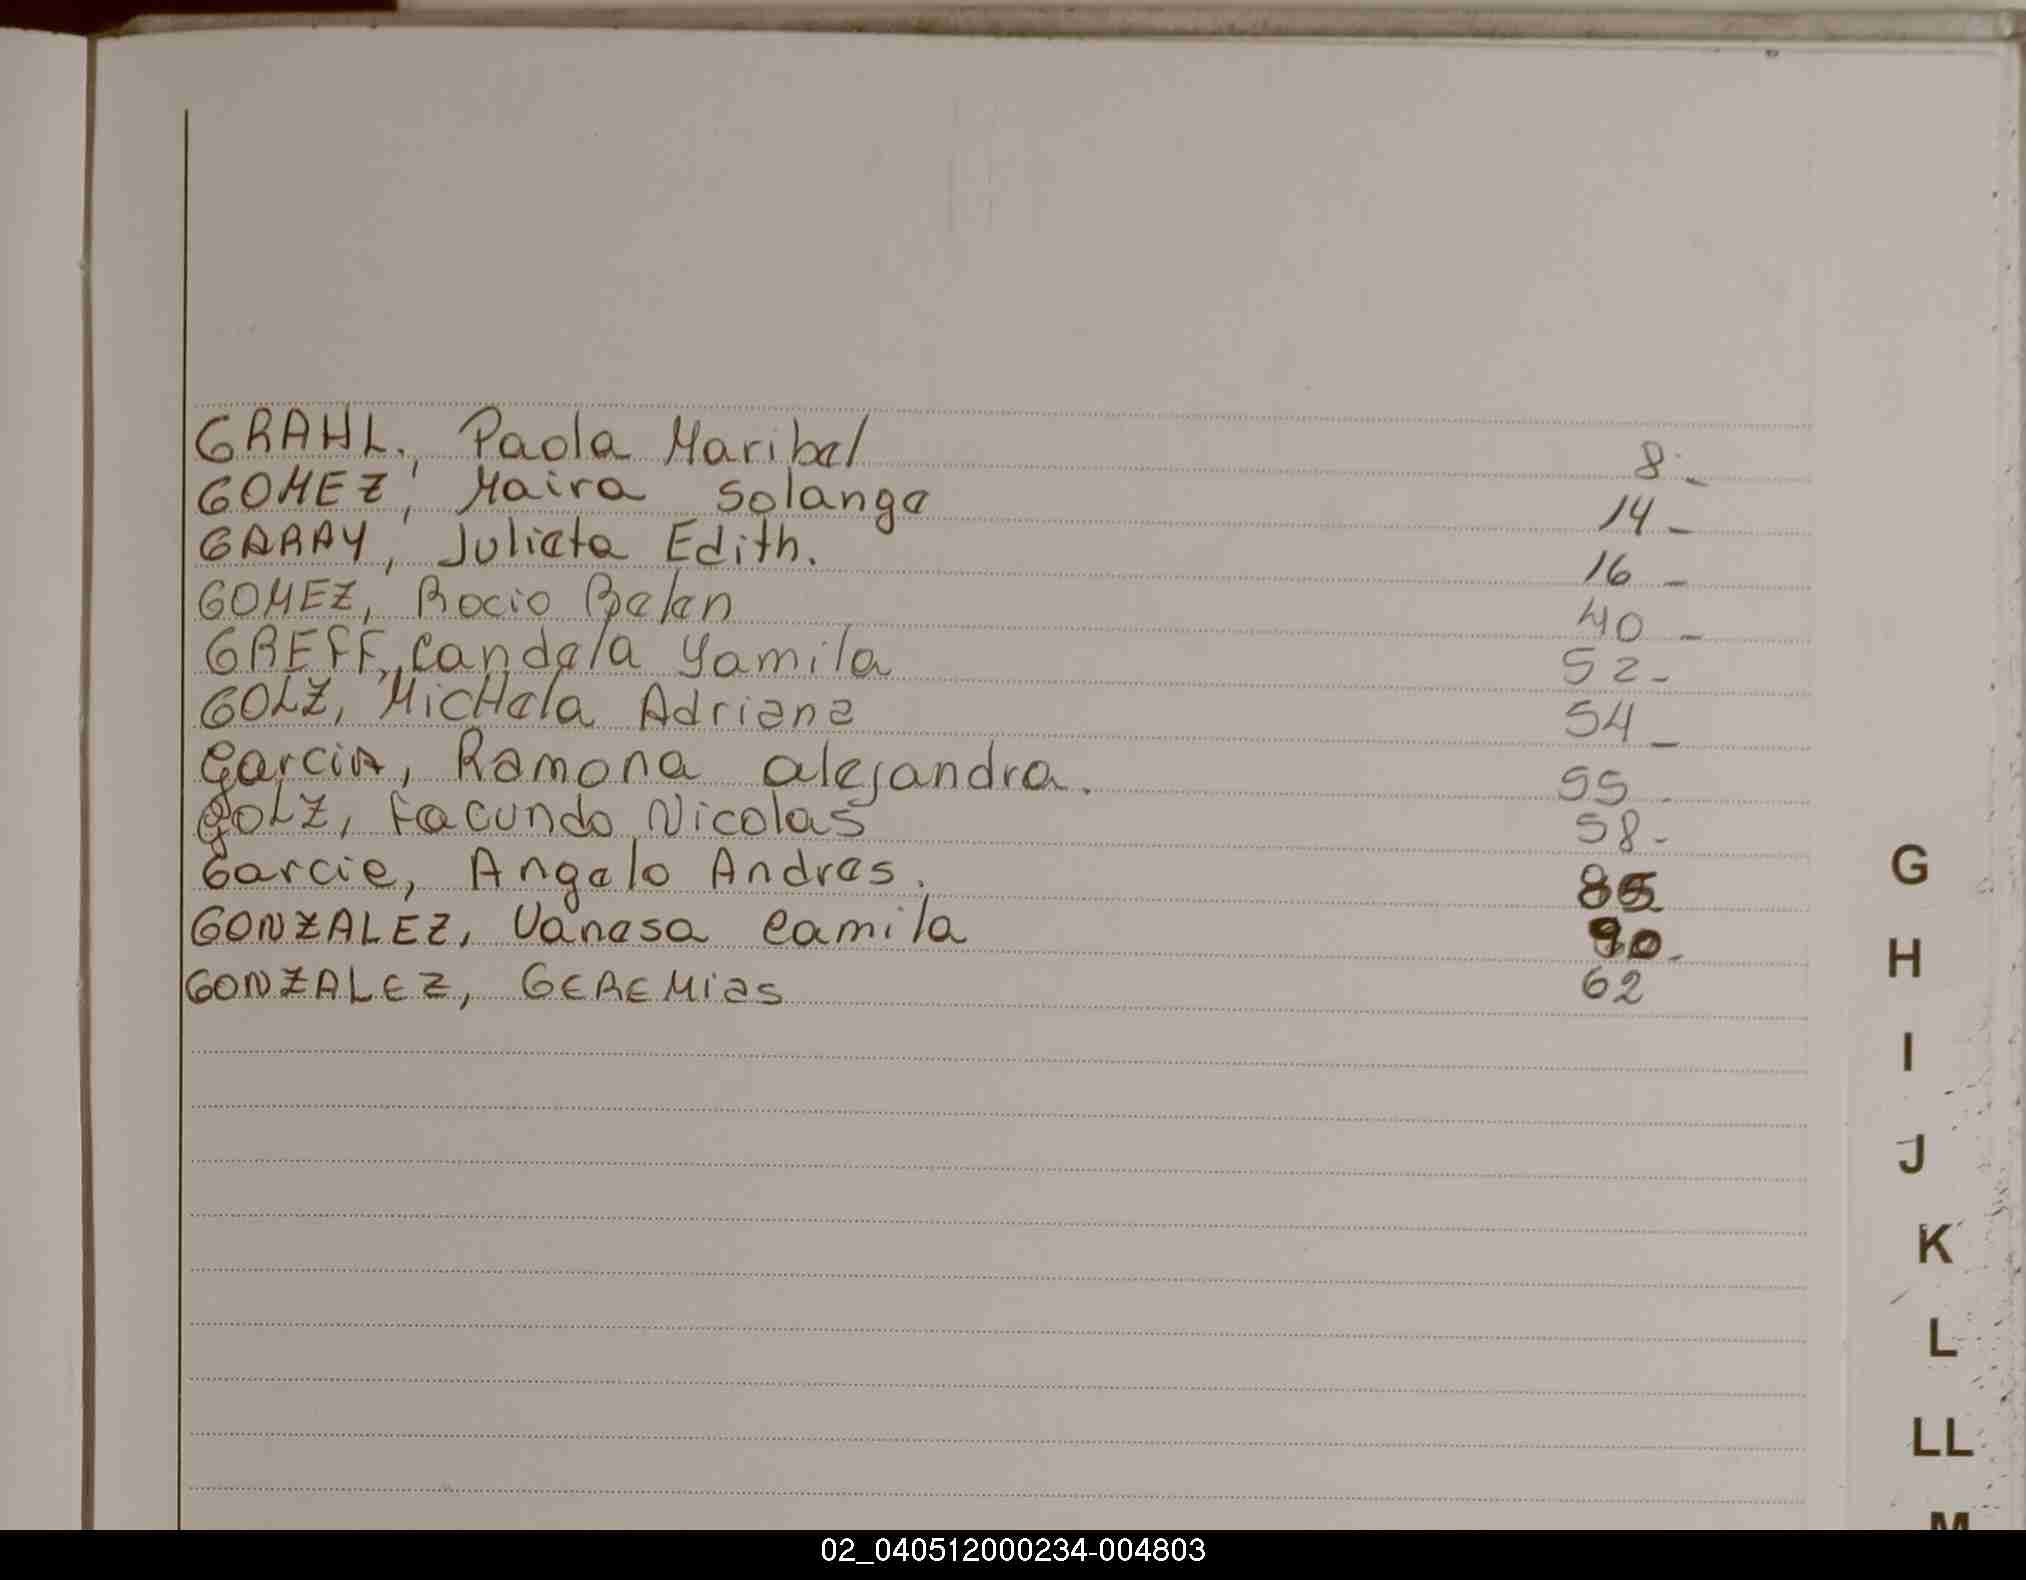 GRAHL, Paola Maribel 8-
GOMEZ, Maira Solange 14-
GARAY, Julieta Edith. 16-
GOMEZ, Rocio Belen 40-
GREFF, Candela Yamila 52-
GOLZ, MicHela Adriana 54-
Garcia, Ramona alejandra. 55-
golz, Facundo Nicolas 58-
Garcia, Angelo Andres.
GONZALEZ, Vanesa Camila 90-
GONZALEZ, GEREMias 62
G
H
I
J
K
L
LL
M
02_040512000234-004803